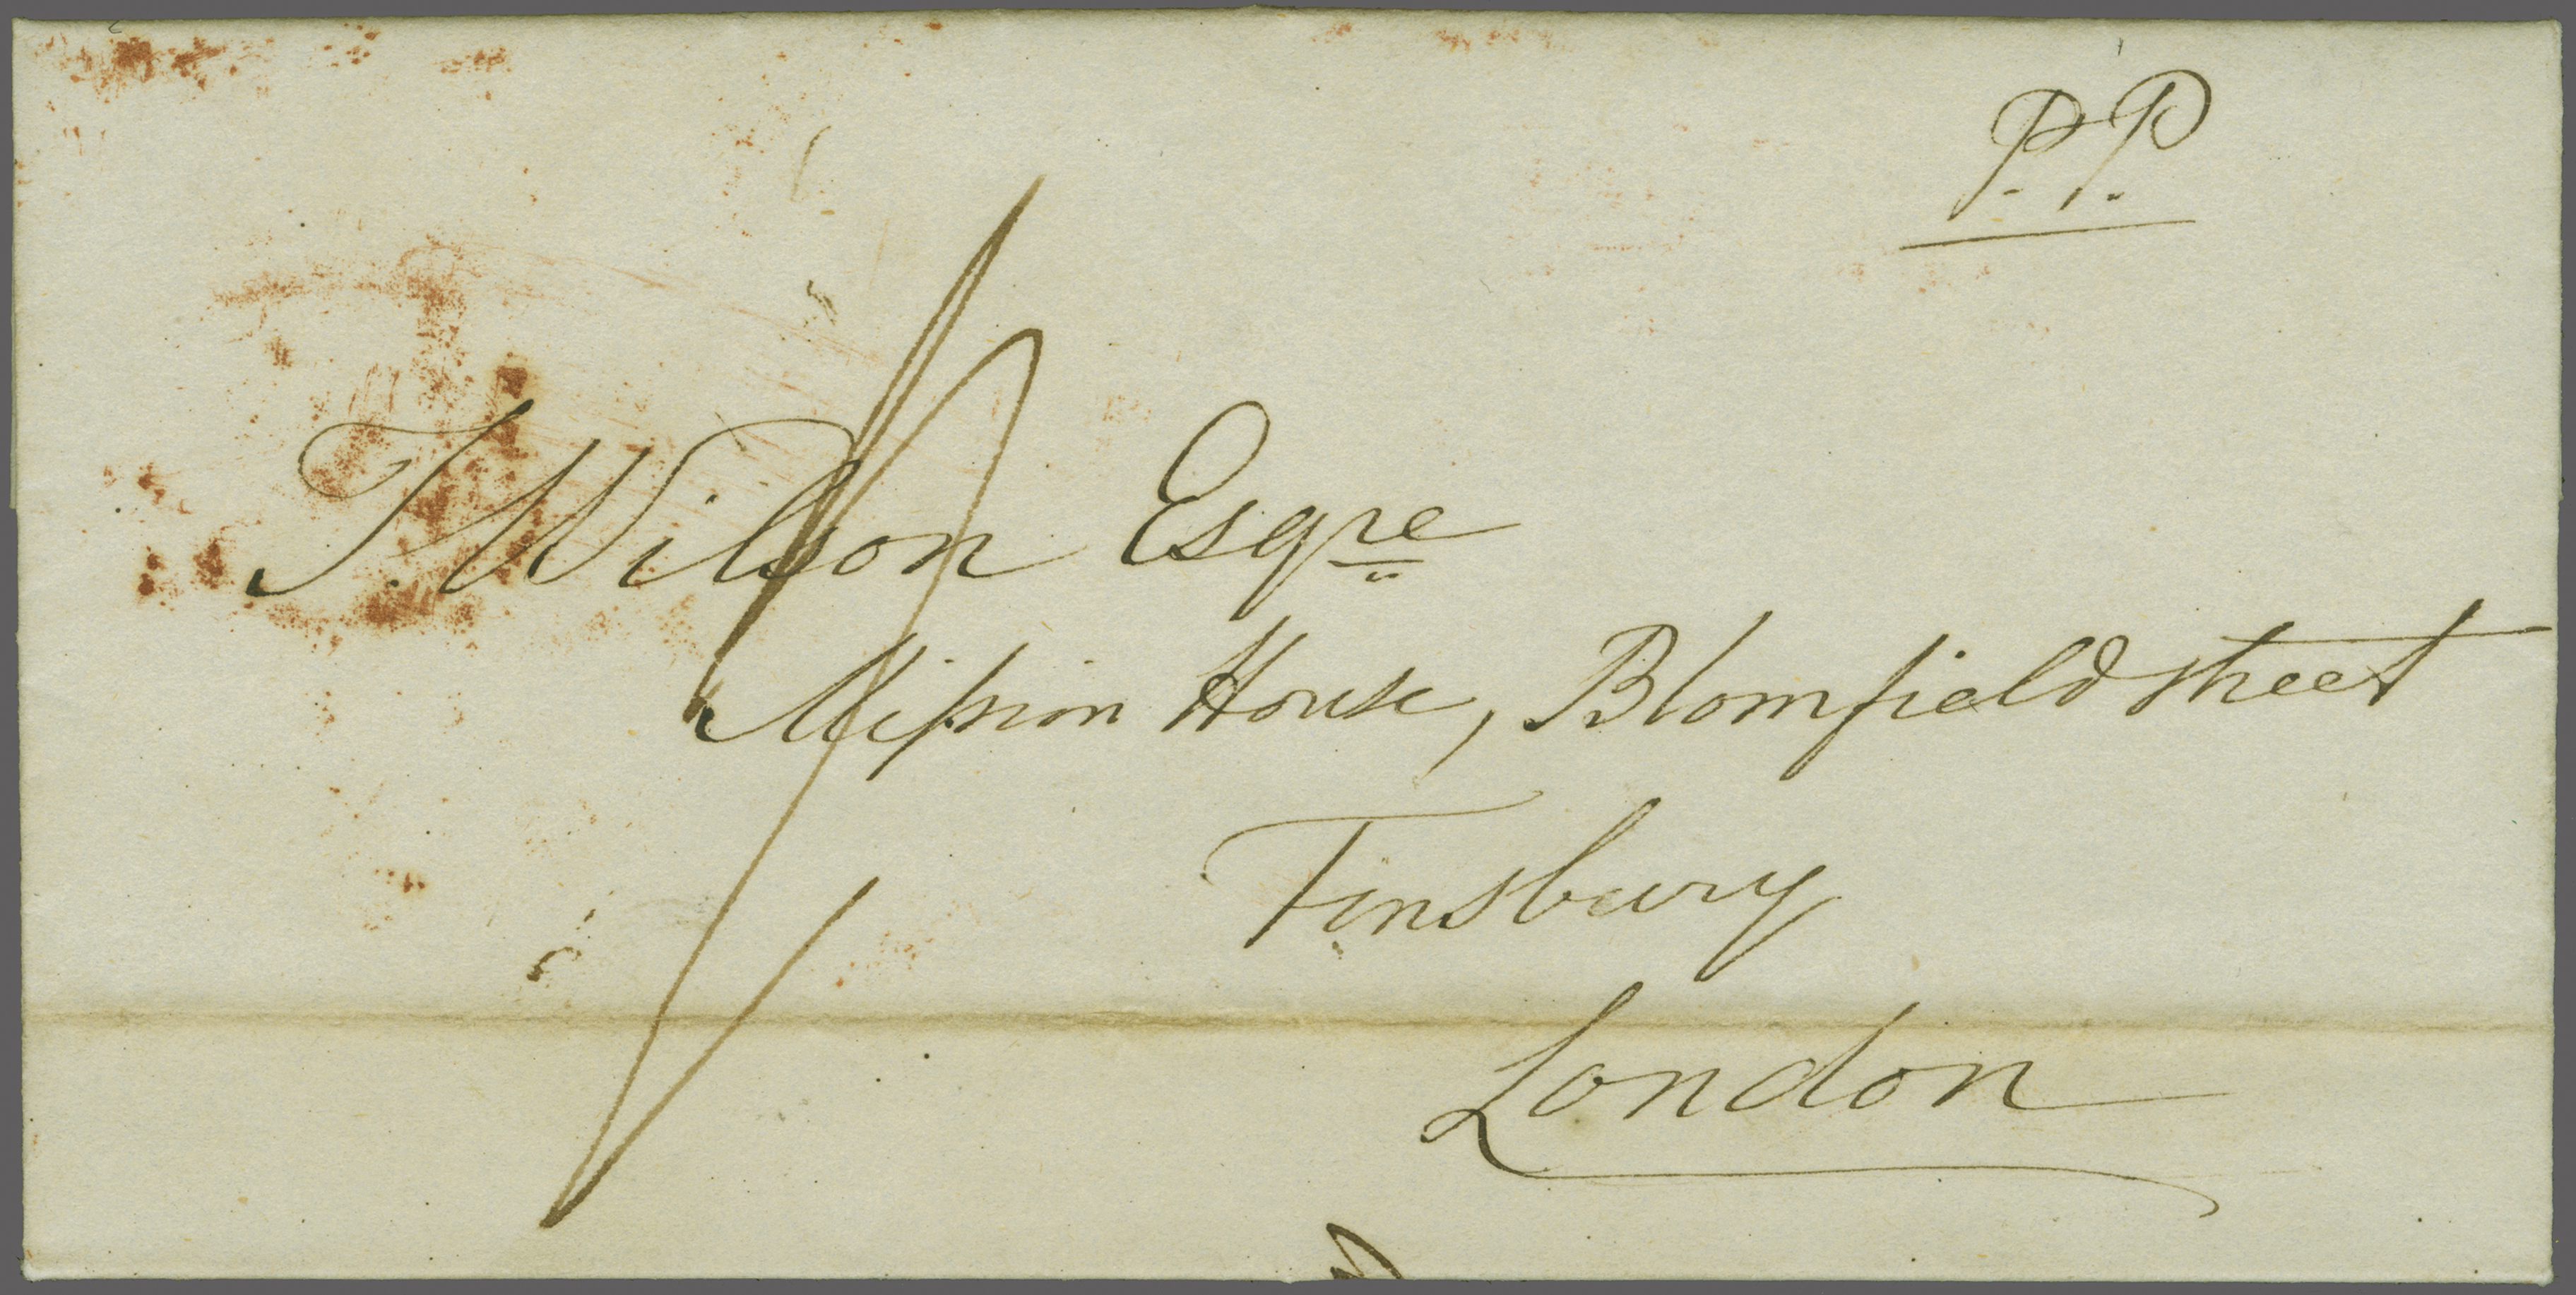 P.P.
T. Wilson Esqre
Mission House, Blomfield street
Finsbury
London